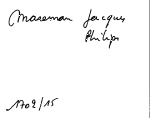 Mareman Jacques
Philips
1702/15